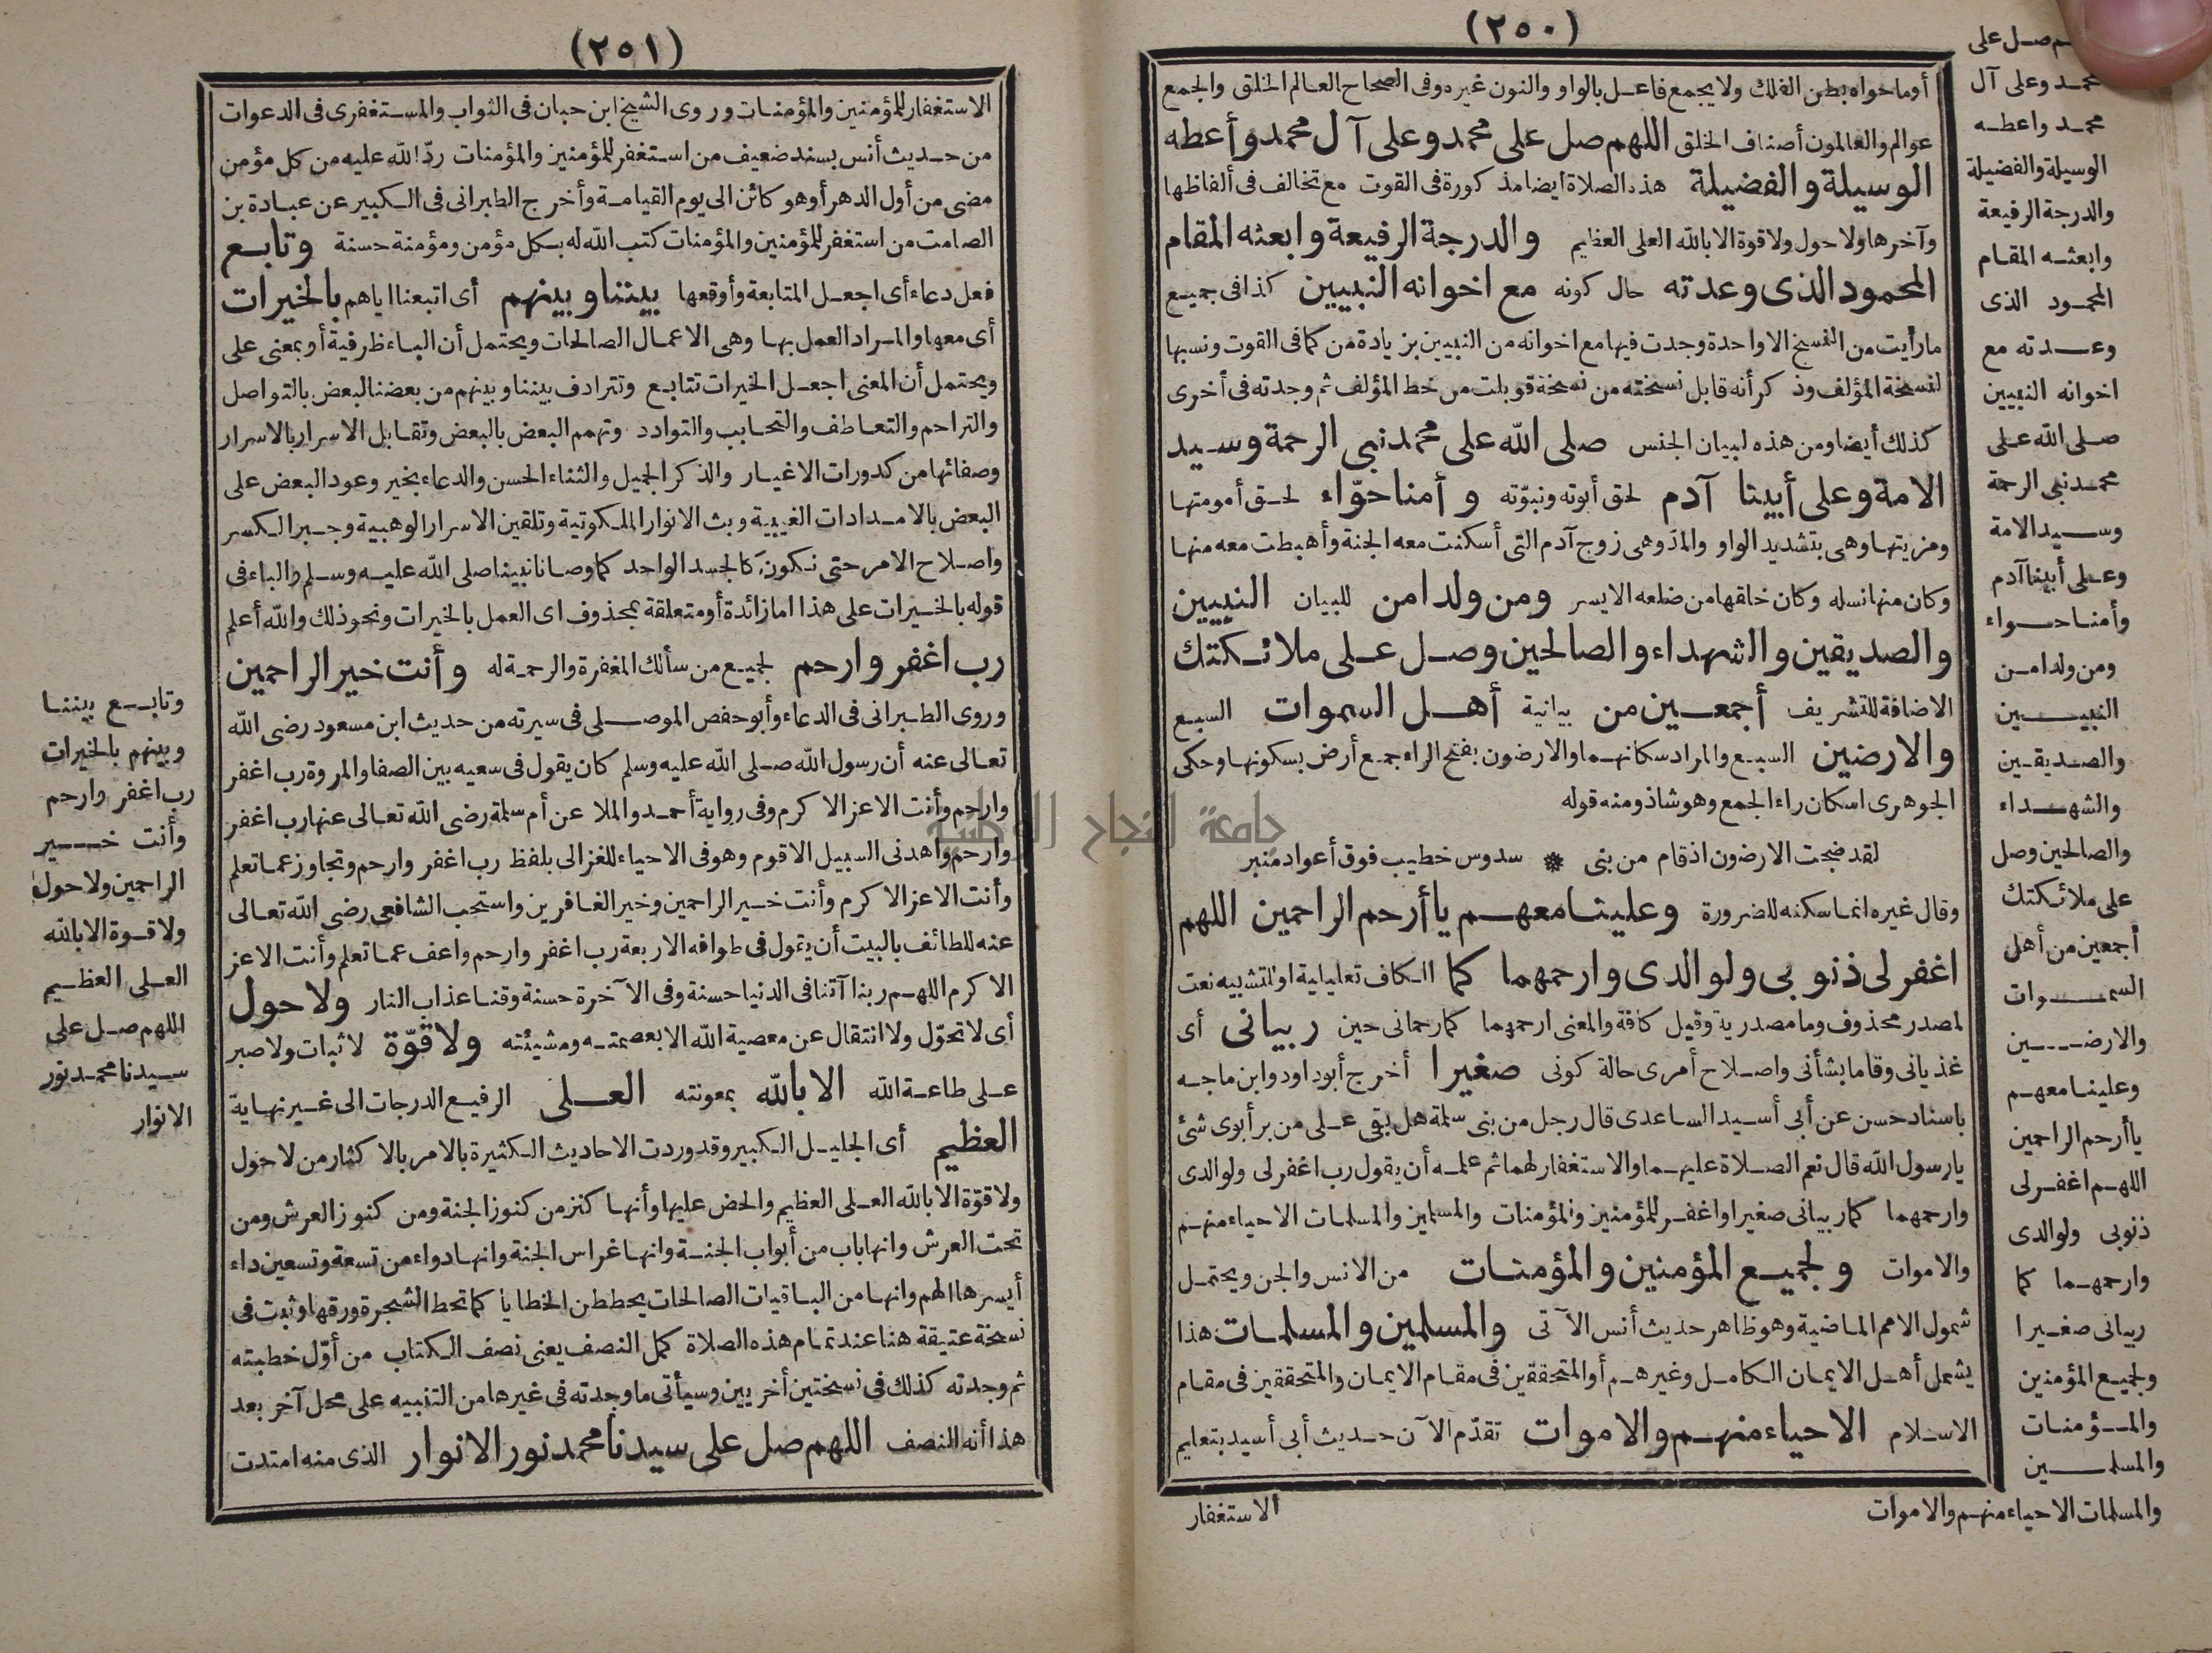 (٢٥٠)
أوماحواه بطن الفلك ولا يجمع فاعل بالواو والنون غيره وفى الصحاح العالم الخلق والجمع
عوالم والعالمون أصناف الخلق اللهم صل على محمد وعلى آل محمد وأعطه
الوسيلة والفضيلة هذه الصلاة أيضا مذكورة فى القوت مع تخالف فى ألفاظها
وآخرها ولا حول ولا قوة الا بالله العلى العظيم والدرجة الرفيعة وابعثه المقام
المحمود الذى وعدته حال كونه مع اخوانه النبيين كذا فى جميع
مارأيت من النسخ الا واحدة وجدت فيها مع اخوانه من النبيين بزيادة من كما فى القوت ونسبها
لنسخة المؤلف وذكر أنه قابل نسخته من نسخة قوبلت من خط المؤلف ثم وجدته فى أخرى
كذلك أيضا ومن هذه لبيان الجنس صلى الله على محمد نبى الرحمة وسيد
الامة وعلى أبينا آدم لحق أبوته ونبوّته و أمنا حوّاء لحق أمومتها
ومزيتها وهى بتشديد الواو والمدّ وهى زوج آدم التى أسكنت معه الجنة وأهبطت معه منها
وكان منها نسله وكان خلقها من ضلعه الايسر ومن ولدا من للبيان النبيين
والصديقين والشهداء والصالحين وصل على ملائكتك
الاضافة للتشريف أجمعين من بيانية أهل السموات السبع
والارضين السبع والمراد سكانهما والارضون بفتح الراء جمع أرض بسكونها وحكى
الجوهرى اسكان راء الجمع وهو شاذ ومنه قوله
لقد ضجت الارضون اذ قام من بنى * سدوس خطيب فوق أعواد منبر
وقال غيره انما سكنه للضرورة وعلينا معهم يا أرحم الراحمين اللهم
اغفر لى ذنوبى ولوالدى وارحمهما كما الكاف تعليلية او للتشبيه نعت
لمصدر محذوف وما مصدرية وقيل كافة والمعنى ارحمهما كما رحمانى حين ربيانى أى
غذيانى وقاما بشأنى واصلاح أمرى حالة كونى صغيرا أخرج أبوداود وابن ماجه
باسناد حسن عن أبى أسيد الساعدى قال رجل من بنى سلمة هل بقى على من بر أبوى شئ
يارسول الله قال نعم الصلاة عليهما والاستغفار لهما ثم علمه أن يقول رب اغفر لى ولوالدى
وارحمهما كما ربيانى صغيرا واغفر للمؤمنين والمؤمنات والمسلمين والمسلمات الاحياء منهم
والاموات ولجميع المؤمنين والمؤمنات من الانس والجن ويحتمل
شمول الامم الماضية وهو ظاهر حديث أنس الآتى والمسلمين والمسلمات هذا
يشمل أهل الايمان الكامل وغيرهم أو المتحققين فى مقام الايمان والمتحققين فى مقام
الاسلام الاحياء منهم والاموات تقدّم الآن حديث أبى أسيد بتعليم
الاستغفار
ـم صل على
محمد وعلى آل
محمد واعطه
الوسيلة والفضيلة
والدرجة الرفيعة
وابعثه المقام
المحمود الذى
وعدته مع
اخوانه النبيين
صلى الله على
محمد نبى الرحمة
وسيد الامة
وعلى أبينا آدم
وأمنا حواء
ومن ولدا من
النبيين
والصديقين
والشهداء
والصالحين وصل
على ملائكتك
أجمعين من أهل
السموات
والارضين
وعلينا معهم
يا أرحم الراحمين
اللهم اغفر لى
ذنوبى ولوالدى
وارحمهما كما
ربيانى صغيرا
ولجميع المؤمنين
والمؤمنات
والمسلمين
والمسلمات الاحياء منهم والاموات
(٢٥١)
الاستغفار للمؤمنين والمؤمنات وروى الشيخ ابن حبان فى الثواب والمستغفرى فى الدعوات
من حديث أنس بسند ضعيف من استغفر للمؤمنين والمؤمنات ردّ الله عليه من كل مؤمن
مضى من أول الدهر أو هو كائن الى يوم القيامة وأخرج الطبرانى فى الكبير عن عبادة بن
الصامت من استغفر للمؤمنين والمؤمنات كتب الله له بكل مؤمن ومؤمنة حسنة وتابع
فعل دعاء أى اجعل المتابعة وأوقعها بيننا وبينهم أى اتبعنا اياهم بالخيرات
أى معها والمراد العمل بها وهى الاعمال الصالحات ويحتمل أن الباء ظرفية أو بمعنى على
ويحتمل أن المعنى اجعل الخيرات تتابع وتترادف بيننا وبينهم من بعضنا البعض بالتواصل
والتراحم والتعاطف والتحابب والتوادد وتهمم البعض بالبعض وتقابل الاسرار بالاسرار
وصفائها من كدورات الاغيار والذكر الجميل والثناء الحسن والدعاء بخير وعود البعض على
البعض بالامدادات الغيبية وبث الانوار الملكوتية وتلقين الاسرار الوهبية وجبر الكسر
واصلاح الامر حتى نكون كالجسد الواحد كما وصانا نبينا صلى الله عليه وسلم والباء فى
قوله بالخيرات على هذا اما زائدة أو متعلقة بمحذوف اى العمل بالخيرات ونحو ذلك والله أعلم
رب اغفر وارحم لجميع من سألك المغفرة والرحمة له وأنت خير الراحمين
وروى الطبرانى فى الدعاء وأبو حفص الموصلى فى سيرته من حديث ابن مسعود رضى الله
تعالى عنه أن رسول الله صلى الله عليه وسلم كان يقول فى سعيه بين الصفا والمروة رب اغفر
وارحم وأنت الاعز الاكرم وفى رواية أحمد والملا عن أم سلمة رضى الله تعالى عنها رب اغفر
وارحم واهدنى السبيل الاقوم وهو فى الاحياء للغزالى بلفظ رب اغفر وارحم وتجاوز عما تعلم
وأنت الاعز الاكرم وأنت خير الراحمين وخير الغافرين واستحب الشافعى رضى الله تعالى
عنه للطائف بالبيت أن يقول فى طوافه الاربعة رب اغفر وارحم واعف عما تعلم وأنت الاعز
الاكرم اللهم ربنا آتنا فى الدنيا حسنة وفى الآخرة حسنة وقنا عذاب النار ولا حول
أى لا تحوّل ولا انتقال عن معصية الله الا بعصمته ومشيئته ولا قوّة لا ثبات ولا صبر
على طاعة الله الا بالله بمعونته العلى الرفيع الدرجات الى غير نهاية
العظيم أى الجليل الكبير وقد وردت الاحاديث الكثيرة بالامر بالاكثار من لا حول
ولا قوّة الا بالله العلى العظيم والحض عليها وأنها كنز من كنوز الجنة ومن كنوز العرش ومن
تحت العرش وانها باب من أبواب الجنة وانها غراس الجنة وانها دواء من تسعة وتسعين داء
أيسرها الهم وانها من الباقيات الصالحات يحططن الخطايا كما تحط الشجرة ورقها وثبت فى
نسخة عتيقة هنا عند تمام هذه الصلاة كمل النصف يعنى نصف الكتاب من أوّل خطبته
ثم وجدته كذلك فى نسختين أخريين وسيأتى ما وجدته فى غيرها من التنبيه على محل آخر بعد
هذا أنه النصف اللهم صل على سيدنا محمد نور الانوار الذى منه امتدت
وتابع بيننا
وبينهم بالخيرات
رب اغفر وارحم
وأنت خير
الراحمين ولا حول
ولا قوة الا بالله
العلى العظيم
اللهم صل على
سيدنا محمد نور
الانوار
جامعة النجاح الوطنية